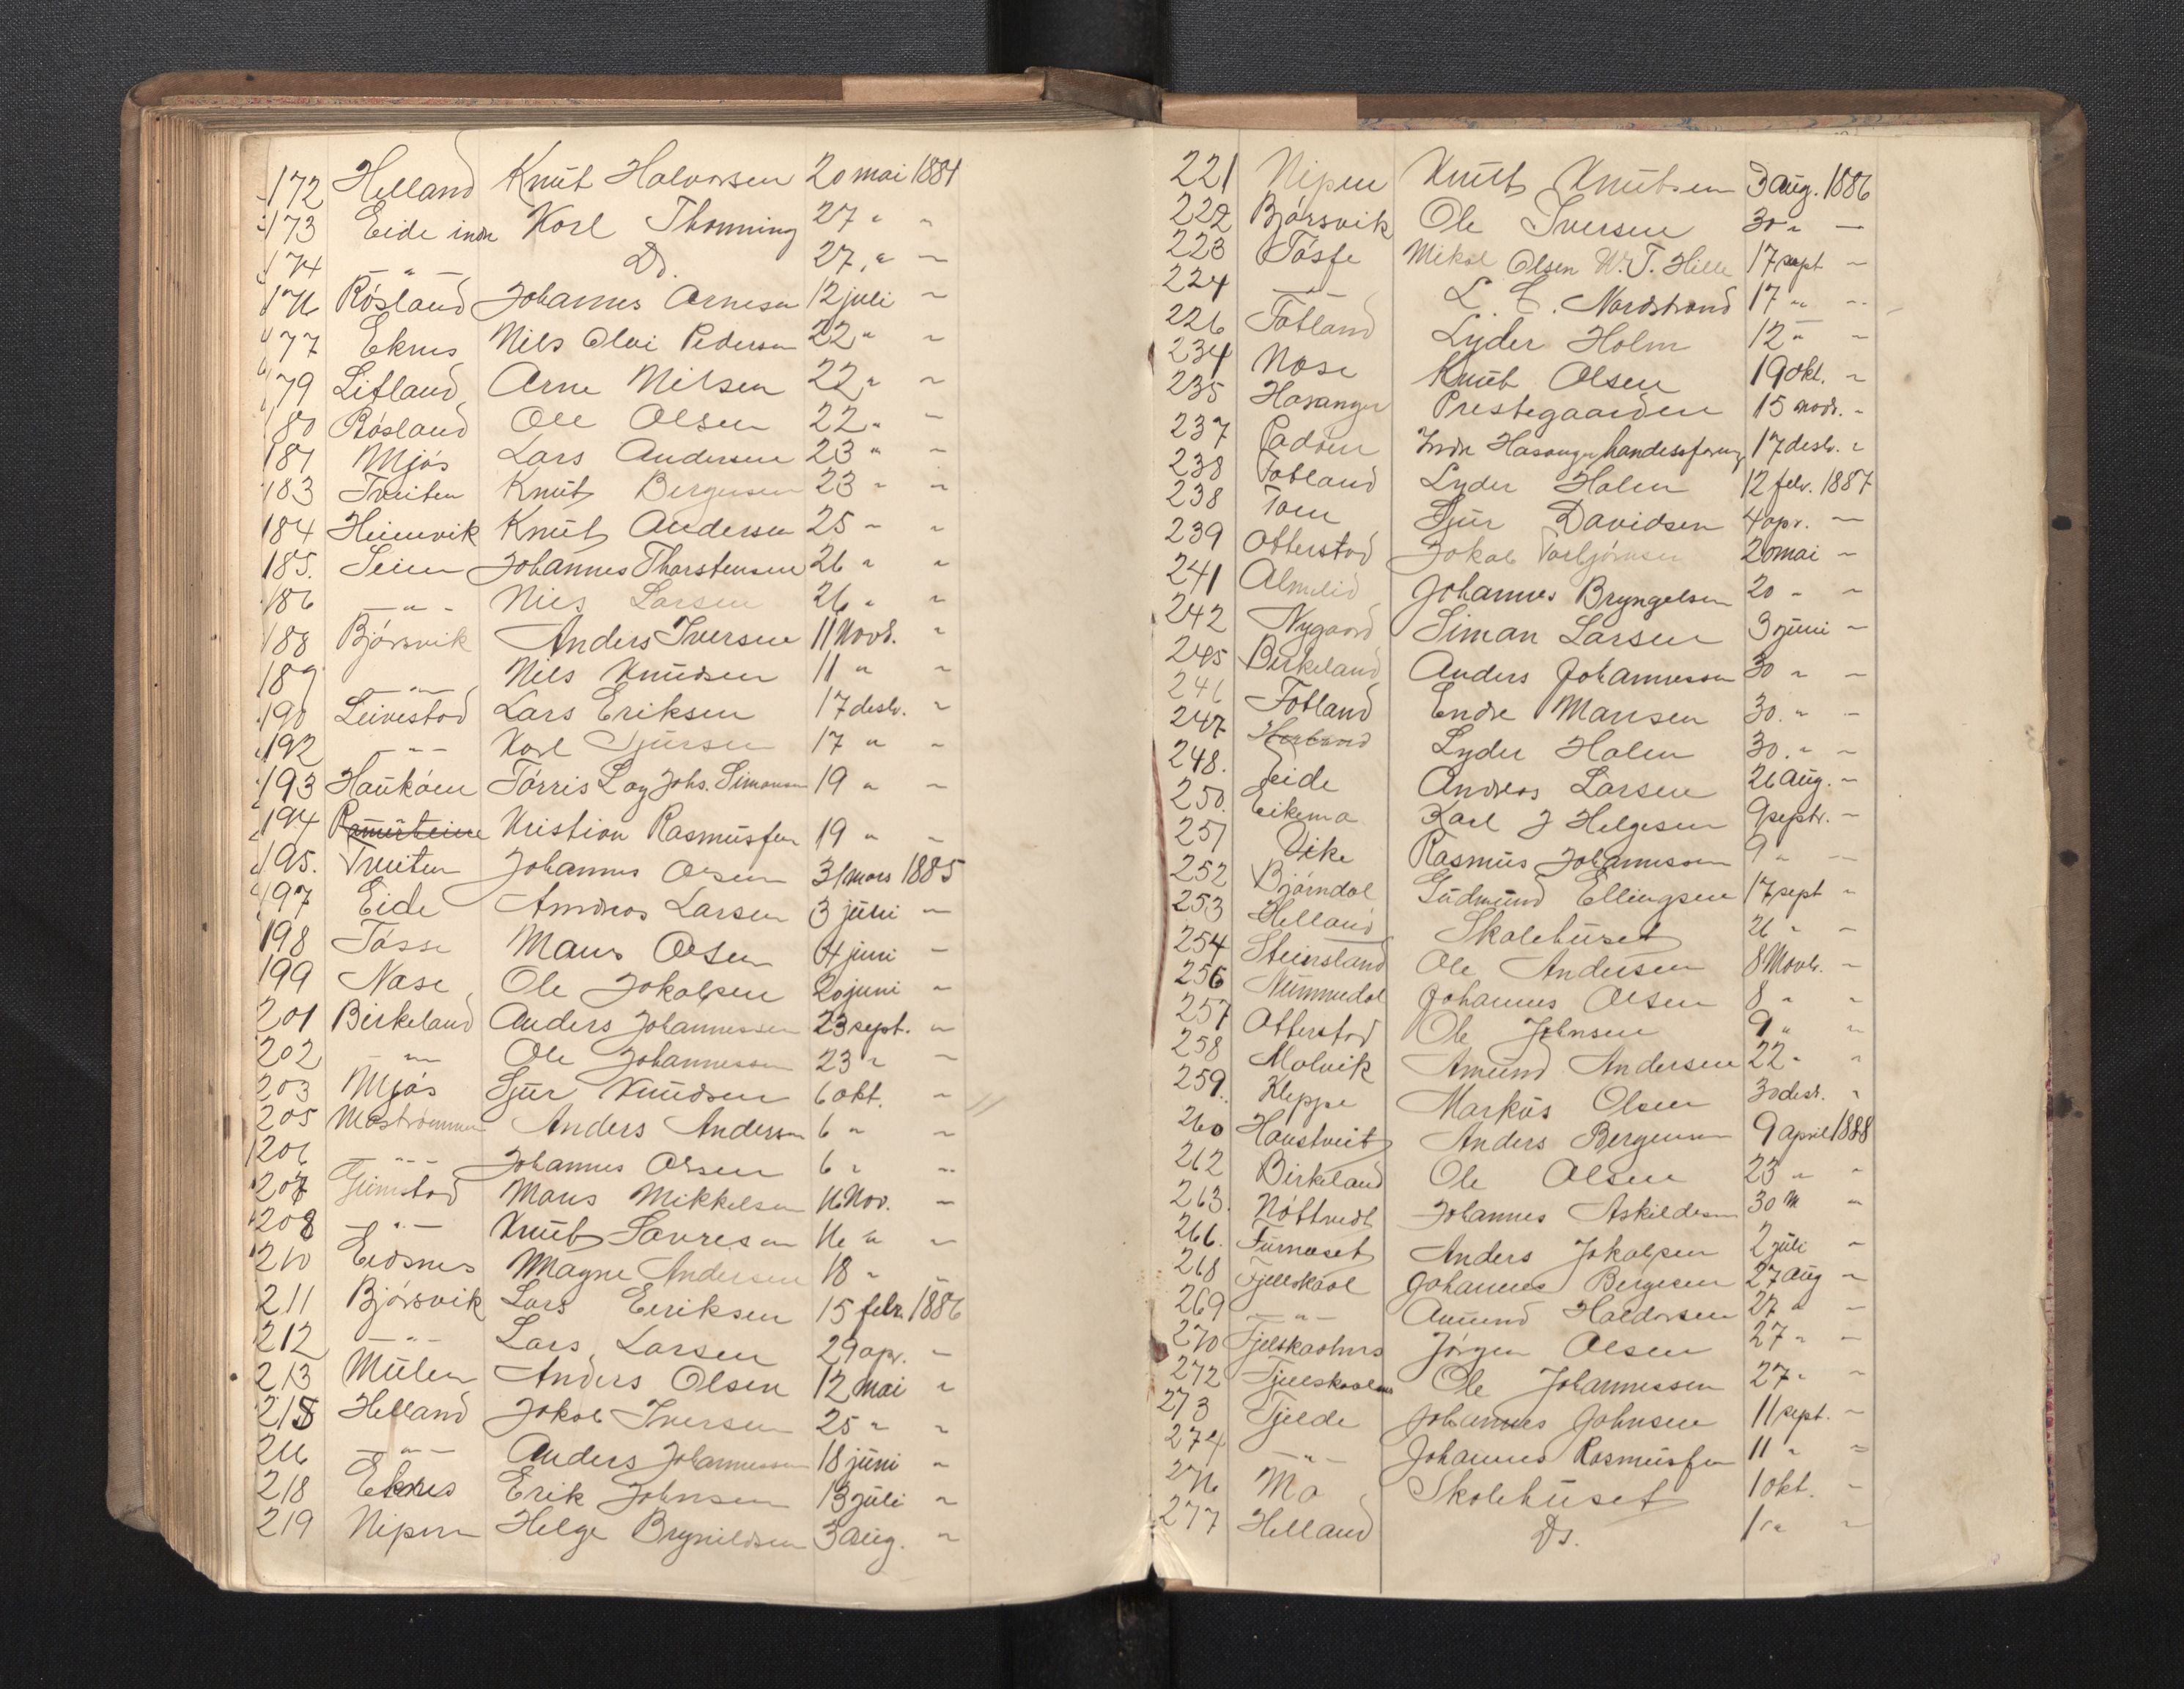 172 Helland Knut Halvorsen 20 mai 1884
173 Eide indr Karl Thonning 27 " "
174 — " — Do. 27. " —
176 Røsland Johannes Arnesen 12 juli "
177 Eknes Nils Olai Pedersen 22 " "
179 Litland Arne Nilsen 22 " "
180 Røsland Ole Olsen 22 " "
181 Mjøs Lars Andersen 23 " "
183 Tveiten Knut Bergesen 23 " "
184 Heimvik Knut Andersen 25 " "
185. Seim Johannes Thorstensen 26 " "
186 — " — Nils Larsen 26 " "
188 Bjørsvik Anders Iversen 11 Novb. "
189 — " — Nils Knudsen 11 " "
190 Leivestad Lars Eriksen 17 desbr. "
192 — " — Karl Sjursen 17 " "
193 Haukåen Tørris L og Johs. Simonsen 19 " "
194 Kristian Rasmussen 19 " "
195. Tveiten Johannes Olsen 31 mars 1885
197 Eide Andreas Larsen 3 juni —
198 Tøsse Mans Olsen 4 juni —
199 Nase Ole Jakobsen 20 juni "
201 Birkeland Anders Johannessen 23 sept. "
202 — " — Ole Johannessen 23 " "
203 Mjøs Sjur Knudsen 6 okt. "
205 Mostrømmen Anders Andersen 6 " "
206 — " — Johannes Olsen 6 " "
207 Grimstad Mans Mikkelsen 16 Nov. —
208 — " — Knut Savresen 16 " "
210 Eidsnes Magne Andersen 18 " "
211 Bjørsvik Lars Eeriksen 15 febr. 1886
212 — " — Lars Larsen 29 apr. "
213 Mulen Anders Olsen 12 mai "
215 Helland Jakob Iversen 25 " "
216 — " — Anders Johannessen 18 juni "
218 Eknes Erik Johnsen 13 juli "
219 Nipen Helge Brynildsen 3 aug. "
221 Nipen Knut Knutsen 3 aug. 1886
222 Bjørsvik Ole Iversen 30 " —
223 Tøsse Mikal Olsen W. T. Hille 17 sept —
224 — " — L. C. Nordstrand 17 " "
226 Fotland Lyder Holm 12 " "
234 Nase Knut Olsen 19 okt. "
235 Hosanger Prestegaarden 15 novb. "
237 Padøen Indr Hosanger handelsforening 17 desbr. "
238 Fotland Lyder Holm 12 febr. 1887
238 Toen Sjur Davidsen 4 apr. —
239 Otterstad Jakob Torbjørnsen 20 mai —
241 Almelid Johannes Bryngelsen 20 " "
242 Nygaard Siman Larsen 3 juni —
245 Birkeland Anders Johannessen 30 " —
246 Fotland Endre Mansen 30. " —
247 Lyder Holm 30. " —
248. Eide Andreas Larsen 26 aug. —
250. Eikemo Karl J Helgesen 9 septr. —
251 Vike Rasmus Johannessen 9 " —
252 Bjørndal Gudmund Ellingsen 17 sept "
253 Helland Skolehuset 26 " "
254 Steinsland Ole Andersen 8 Novb. —
256 Nummedal Johannes Olsen 8 " "
257 Otterstad Ole Johnsen 9 " "
258 Molvik Amund Andersen 22 " "
259. Kleppe Markus Olsen 30 desr. "
260 Haustveit Anders Bergesen 9 april 1888
262 Birkeland Ole Olsen 23 " "
263. Nøttvedt Johannes Askildsen 30 M "
266. Furneset Anders Jakobsen 2 juli "
268 Fjellskaal Johannes Bergesen 27 aug —
269 — " — Amund Haldorsen 27 " —
270 Fjelskaalnes Jørgen Olsen 27 " —
272 Fjellskaalnes Ole Johannessen 27 " "
273 Tjelde Johannes Johnsen 11 sept. —
274 — " — Johannes Rasmussen 11 " "
276 Mo Skolehuset 1 okt. —
277 Helland Do. 1 " "